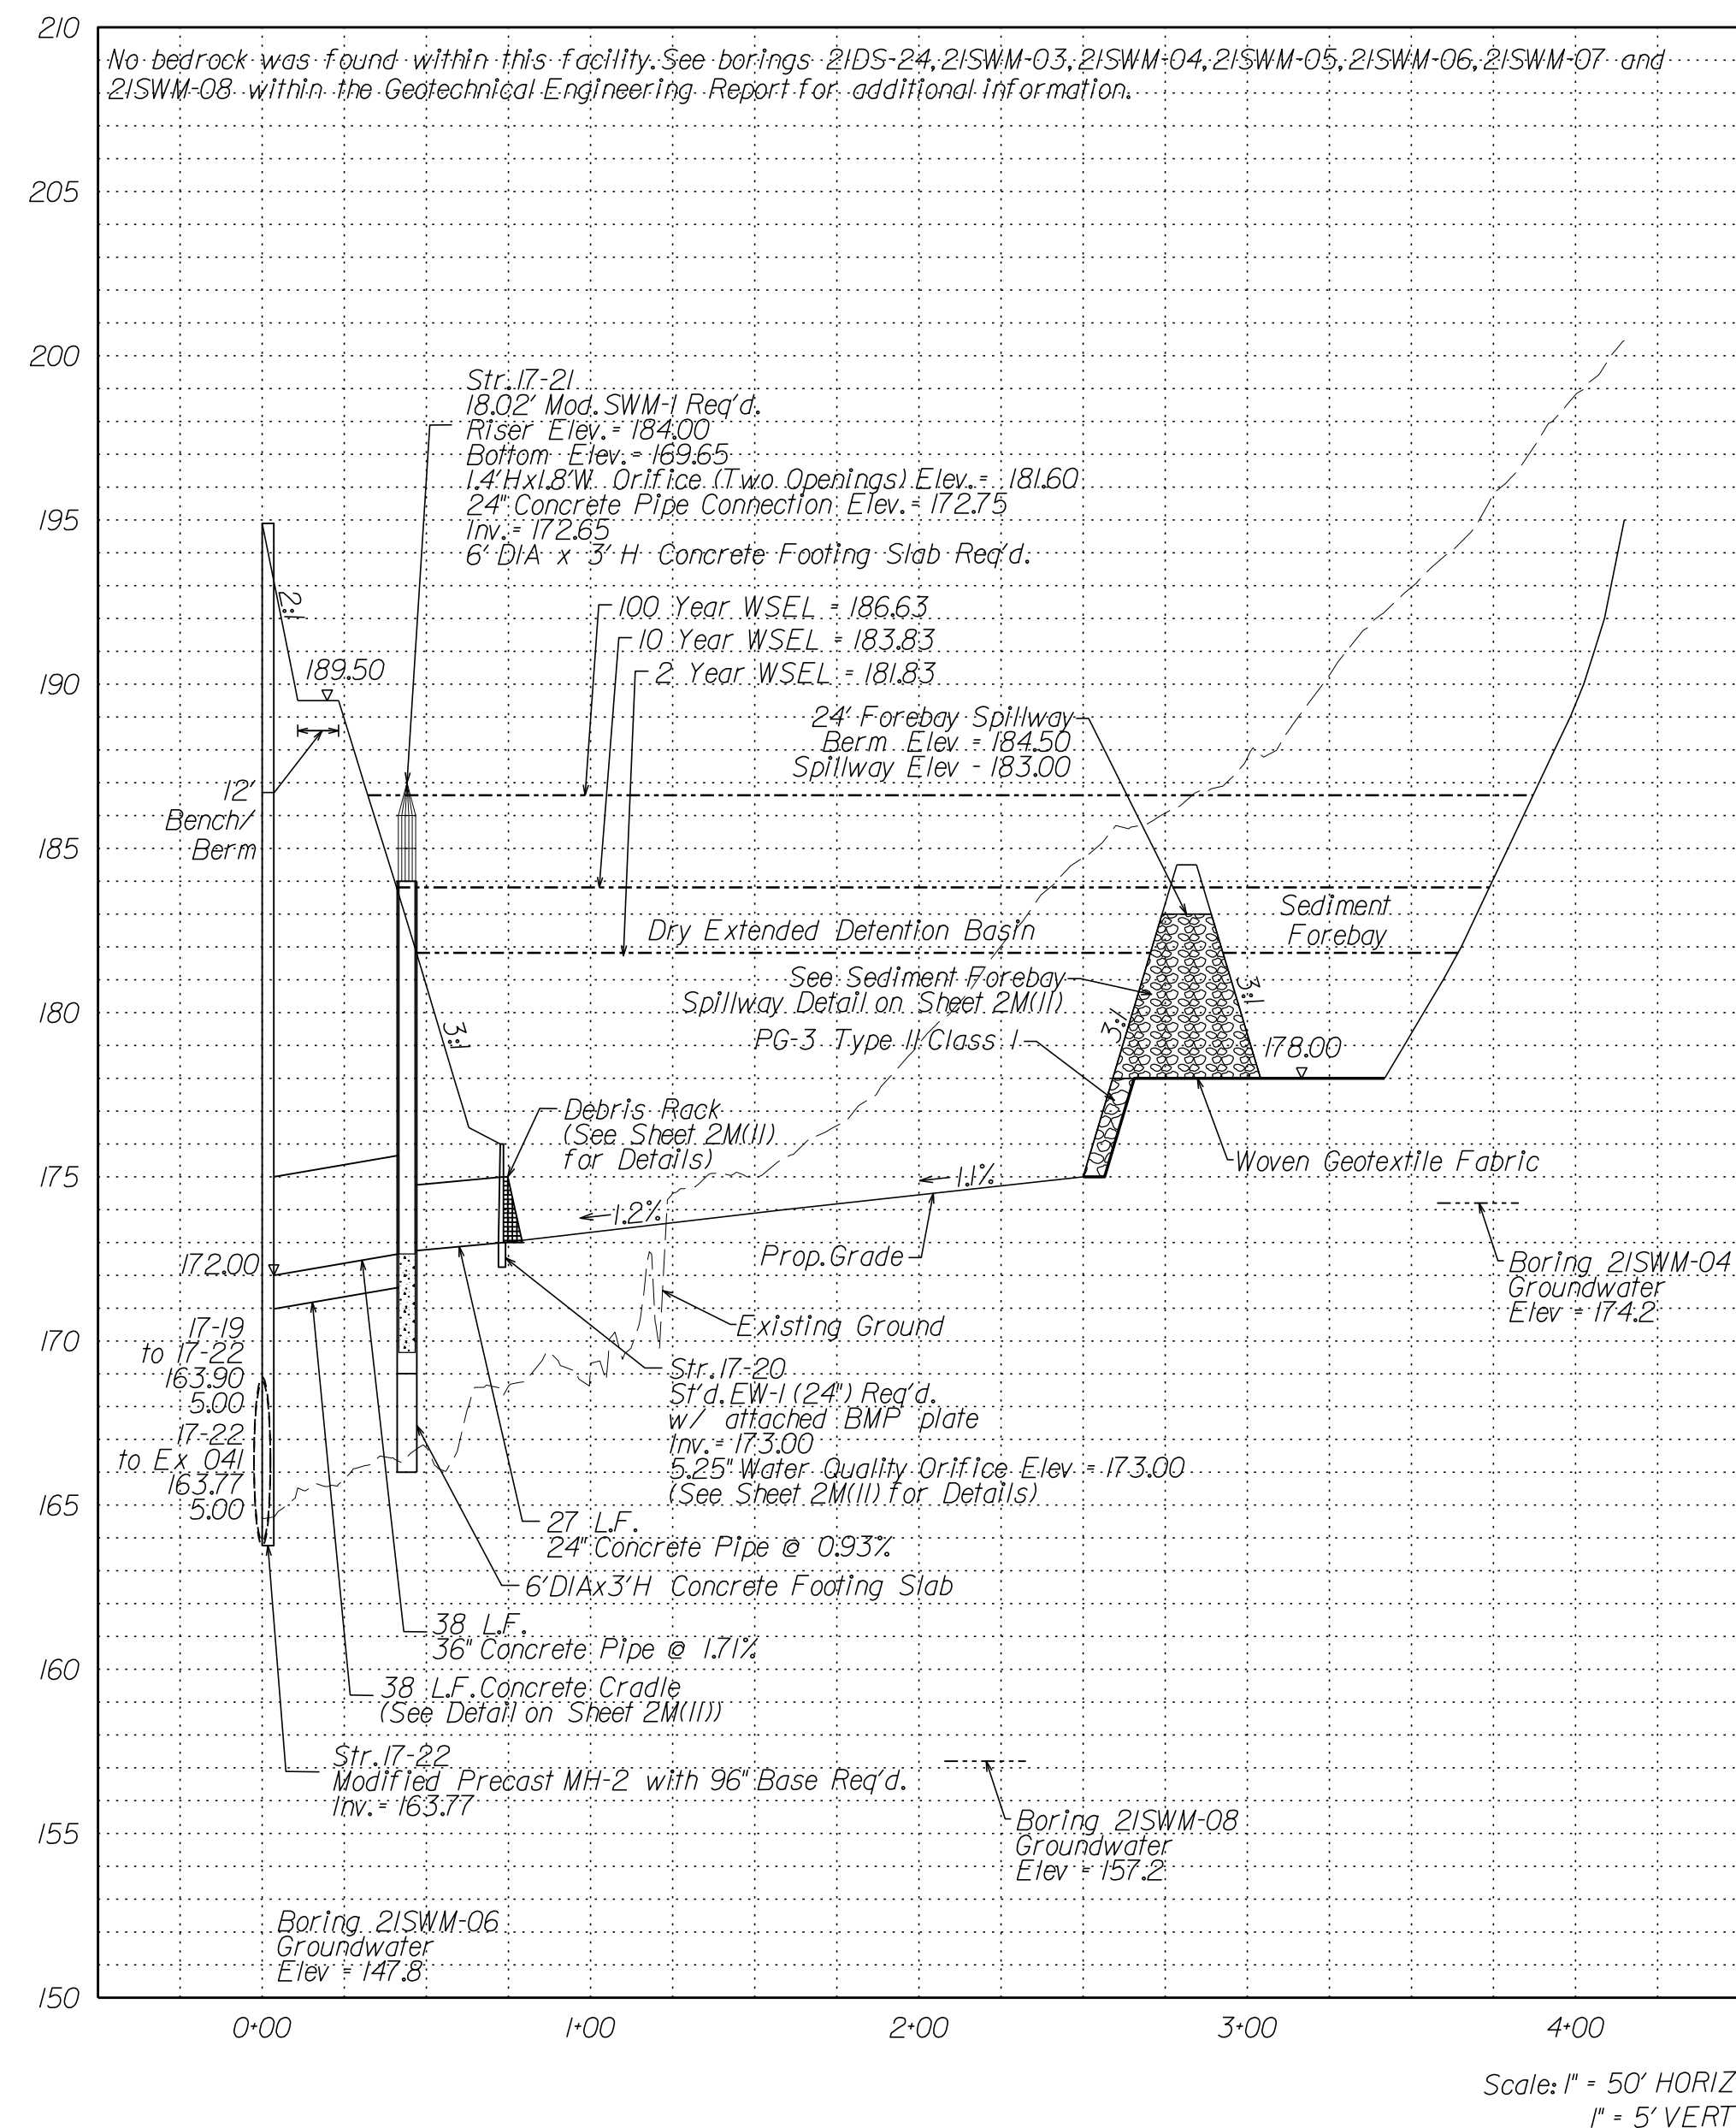 210
No bedrock was found within this facility. See borings 21DS-24, 21SWM-03, 21SWM-04, 21SWM-05, 21SWM-06, 21SWM-07 and
21SWM-08 within the Geotechnical Engineering Report for additional information.
205
200
195
190
185
180
175
170
165
160
155
150
Str. 17-21
18.02' Mod. SWM-1 Req'd.
Riser Elev. = 184.00
Bottom Elev. = 169.65
1.4'Hx1.8'W Orifice (Two Openings) Elev. = 181.60
24" Concrete Pipe Connection Elev. = 172.75
Inv. = 172.65
6' DIA x 3' H Concrete Footing Slab Req'd.
2:1
100 Year WSEL = 186.63
10 Year WSEL = 183.83
2 Year WSEL = 181.83
189.50
24' Forebay Spillway
Berm Elev = 184.50
Spillway Elev - 183.00
12'
Bench/
Berm
Dry Extended Detention Basin
Sediment
Forebay
See Sediment Forebay
Spillway Detail on Sheet 2M(11)
3:1
3:1
3:1
PG-3 Type II Class I
178.00
Debris Rack
(See Sheet 2M(11)
for Details)
Woven Geotextile Fabric
1.1%
1.2%
Prop. Grade
172.00
Boring 21SWM-04
Groundwater
Elev = 174.2
Existing Ground
17-19
to 17-22
163.90
5.00
17-22
to Ex 041
163.77
5.00
Str. 17-20
St'd. EW-1 (24") Req'd.
w/ attached BMP plate
Inv. = 173.00
5.25" Water Quality Orifice Elev = 173.00
(See Sheet 2M(11) for Details)
27 L.F.
24" Concrete Pipe @ 0.93%
6'DIAx3'H Concrete Footing Slab
38 L.F.
36" Concrete Pipe @ 1.71%
38 L.F. Concrete Cradle
(See Detail on Sheet 2M(11))
Str. 17-22
Modified Precast MH-2 with 96" Base Req'd.
Inv. = 163.77
Boring 21SWM-08
Groundwater
Elev = 157.2
Boring 21SWM-06
Groundwater
Elev = 147.8
0+00
1+00
2+00
3+00
4+00
Scale: 1" = 50' HORIZ
1" = 5' VERT